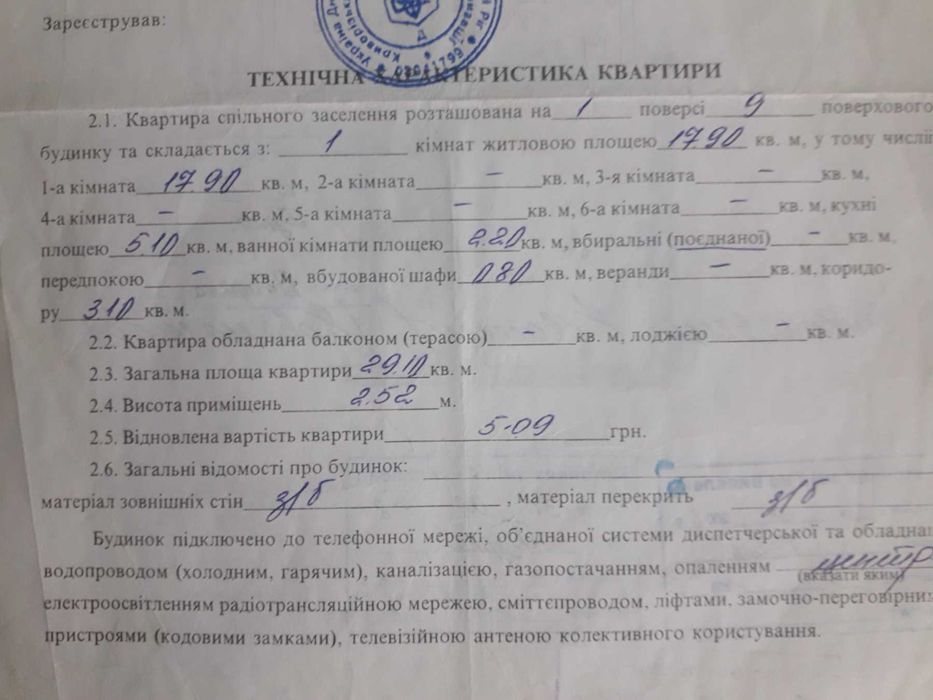 Зареєстрував:
Україна
03041799
ТЕХНІЧНА ХАРАКТЕРИСТИКА КВАРТИРИ
2.1. Квартира спільного заселення розташована на 1 поверсі 9 поверхового
будинку та складається з: 1 кімнат житловою площею 17.90 кв. м, у тому числі
1-а кімната 17.90 кв. м, 2-а кімната – кв. м, 3-я кімната – кв. м,
4-а кімната – кв. м, 5-а кімната – кв. м, 6-а кімната – кв. м, кухні
площею 5.10 кв. м, ванної кімнати площею 2.20 кв. м, вбиральні (поєднаної) – кв. м,
передпокою – кв. м, вбудованої шафи 0.80 кв. м, веранди – кв. м, коридо-
ру 3.10 кв. м.
2.2. Квартира обладнана балконом (терасою) – кв. м, лоджією – кв. м.
2.3. Загальна площа квартири 29.10 кв. м.
2.4. Висота приміщень 2.52 м.
2.5. Відновлена вартість квартири 5-09 грн.
2.6. Загальні відомості про будинок:
матеріал зовнішніх стін з/б, матеріал перекрить з/б
Будинок підключено до телефонної мережі, об’єднаної системи диспетчерської та обладнан
водопроводом (холодним, гарячим), каналізацією, газопостачанням, опаленням центр
(вказати яким)
електроосвітленням радіотрансляційною мережею, сміттєпроводом, ліфтами, замочно-переговірни
пристроями (кодовими замками), телевізійною антеною колективного користування.